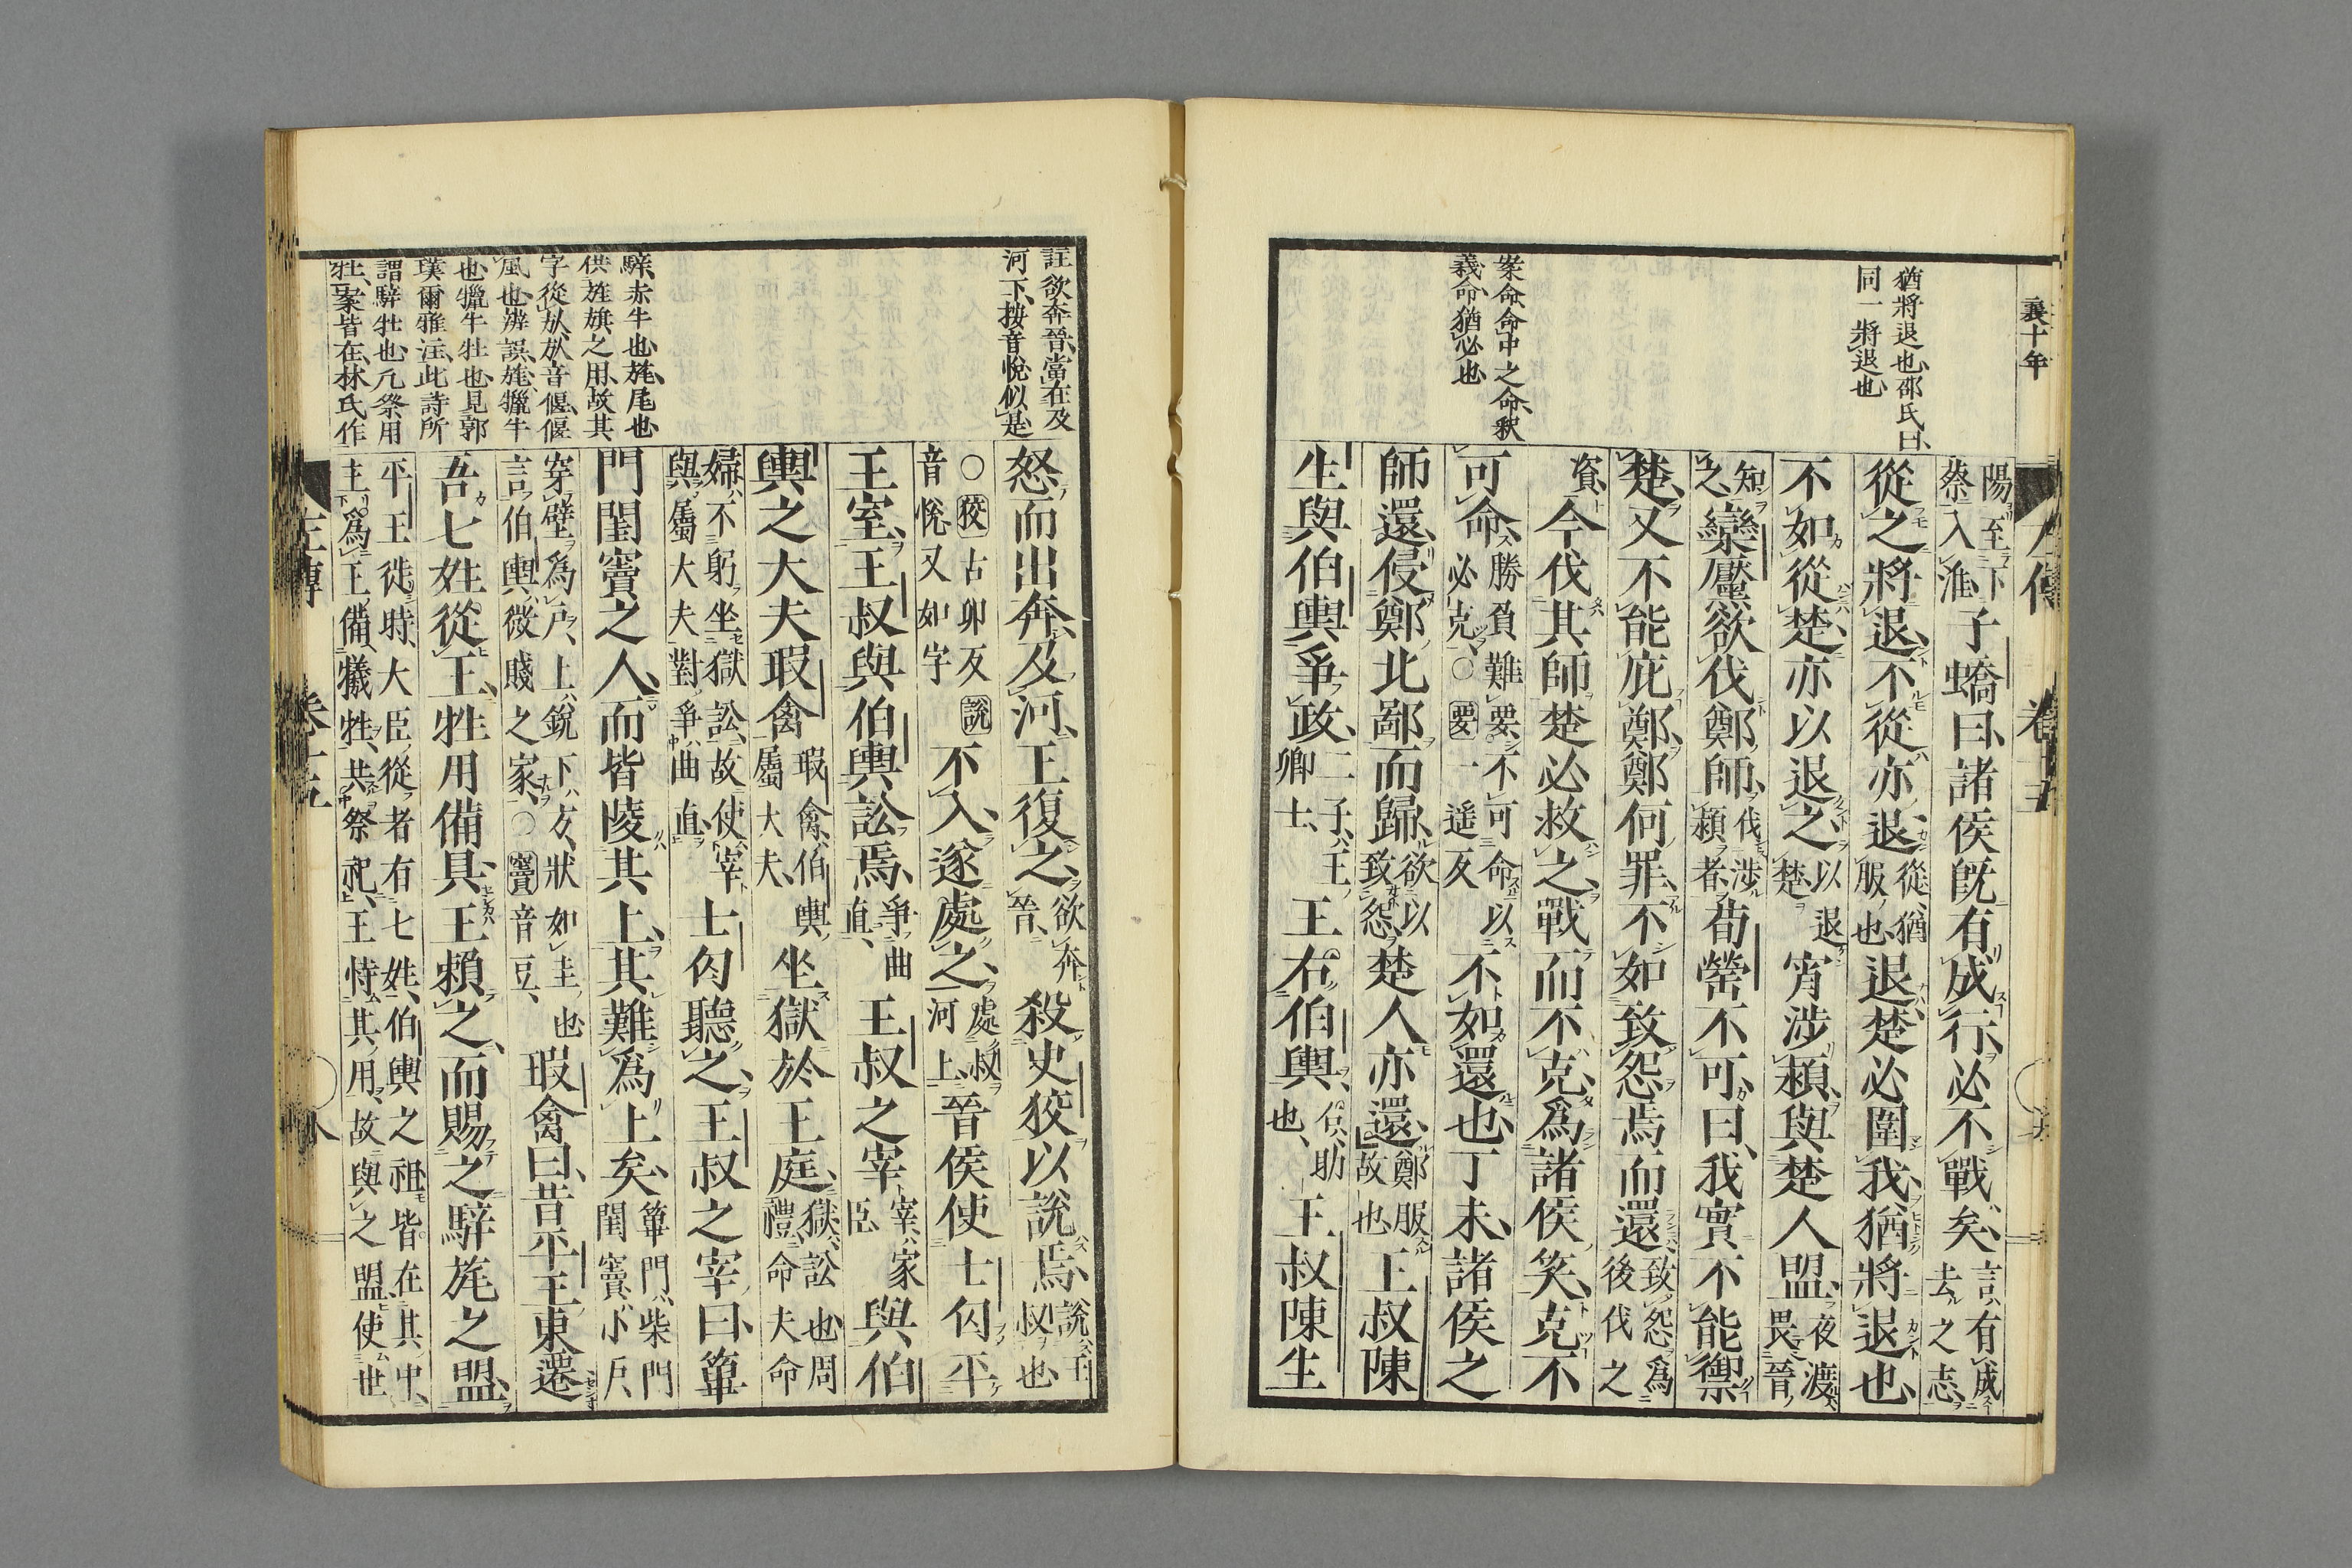 襄十年
猶將退也邵氏曰
同一將退也
案命命中之命釈
義命猶必也
陽至下
蔡入淮子蟜曰諸侯既有成行必不戰矣言有成
去之志
從之將退不從亦退從猶
服也退楚必圍我猶將退也
不如從楚亦以退之以退
楚宵涉潁與楚人盟夜渡
畏晉
知
之欒黶欲伐鄭師伐涉
潁者荀罃不可曰我實不能禦
楚又不能庇鄭鄭何罪不如致怨焉而還致怨為
後伐之
資今伐其師楚必救之戰而不克為諸侯笑克不
可命勝負難要不可命以
必克○要一遥反不如還也丁未諸侯之
師還侵鄭北鄙而歸欲以
致怨楚人亦還鄭服
故也王叔陳
生與伯輿爭政二子王
卿士王右伯輿右助
也王叔陳生
註欲奔晉當在及
河下按音悅似是
騂赤牛也旄尾也
供旌旗之用故其
字從㫃㫃音偃偃
風也辨誤旄犣牛
也犣牛牡也見郭
璞爾雅注此詩所
謂騂牡也凡祭用
牡案皆在林氏作
怒而出奔及河王復之欲奔
晉殺史狡以說焉說王
叔也
○狡古卯反說
音悅又如字不入遂處之處叔
河上晉侯使士匄平
王室王叔與伯輿訟焉爭曲
直王叔之宰宰家
臣與伯
輿之大夫瑕禽瑕禽伯輿
屬大夫坐獄於王庭獄訟也周
禮命夫命
婦不躬坐獄訟故使宰
與屬大夫對爭曲直士匄聽之王叔之宰曰篳
門閨竇之人而皆陵其上其難為上矣篳門柴門
閨竇小戶
穿壁為戶上銳下方狀如圭也
言伯輿微賤之家○竇音豆瑕禽曰昔平王東遷
吾七姓從王牲用備具王賴之而賜之騂旄之盟
平王徙時大臣從者有七姓伯輿之祖皆在其中
主為王備犧牲共祭祀王恃其用故與之盟使世
左傳
卷十五